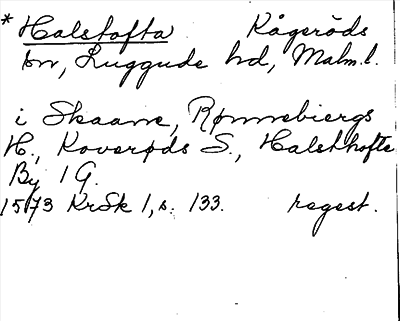 * Halstofta Kågeröds
sn, Luggude hd, Malm.l.
i Skaane, Rønnebiergs
H., Koverøds S., Halsthofte
By 1 G.
1573 KrSk 1, s. 133. regest.